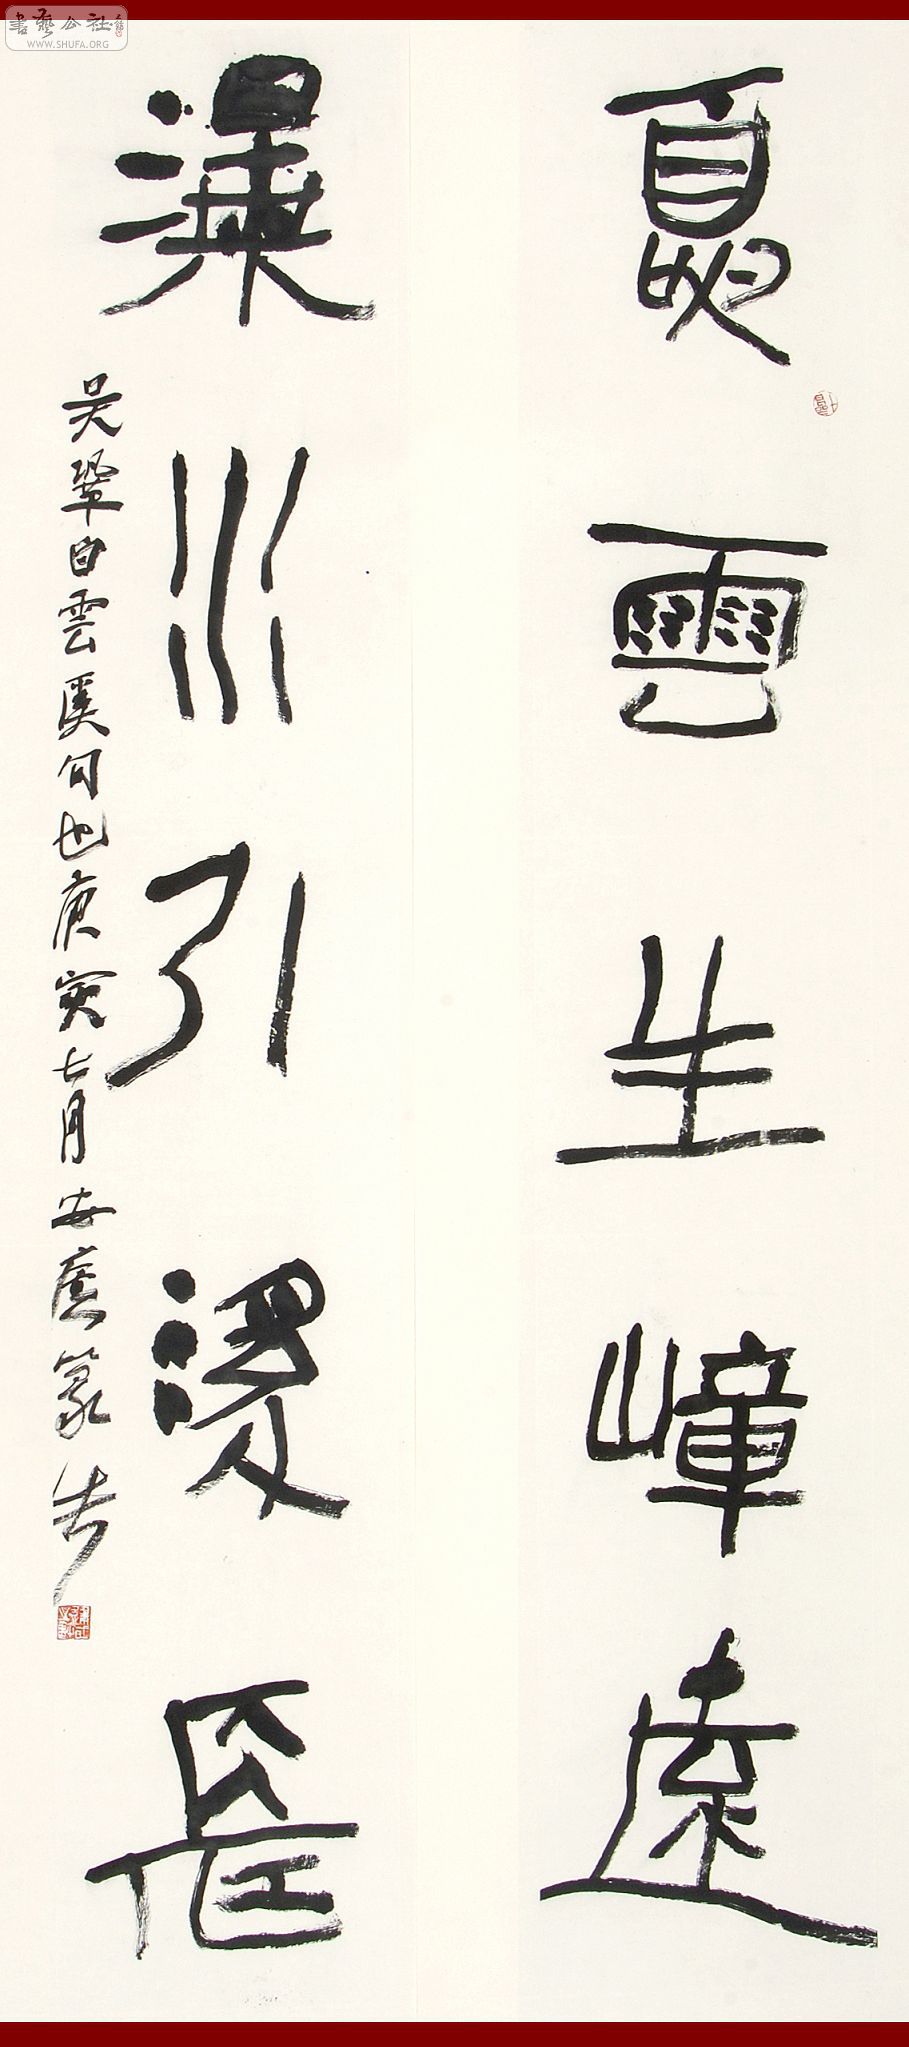 夏雲生嶂遠
瀑水引溪長
吴鞏白雲溪句也庚寅七月安廬篆
書藝公社
WWW.SHUFA.ORG